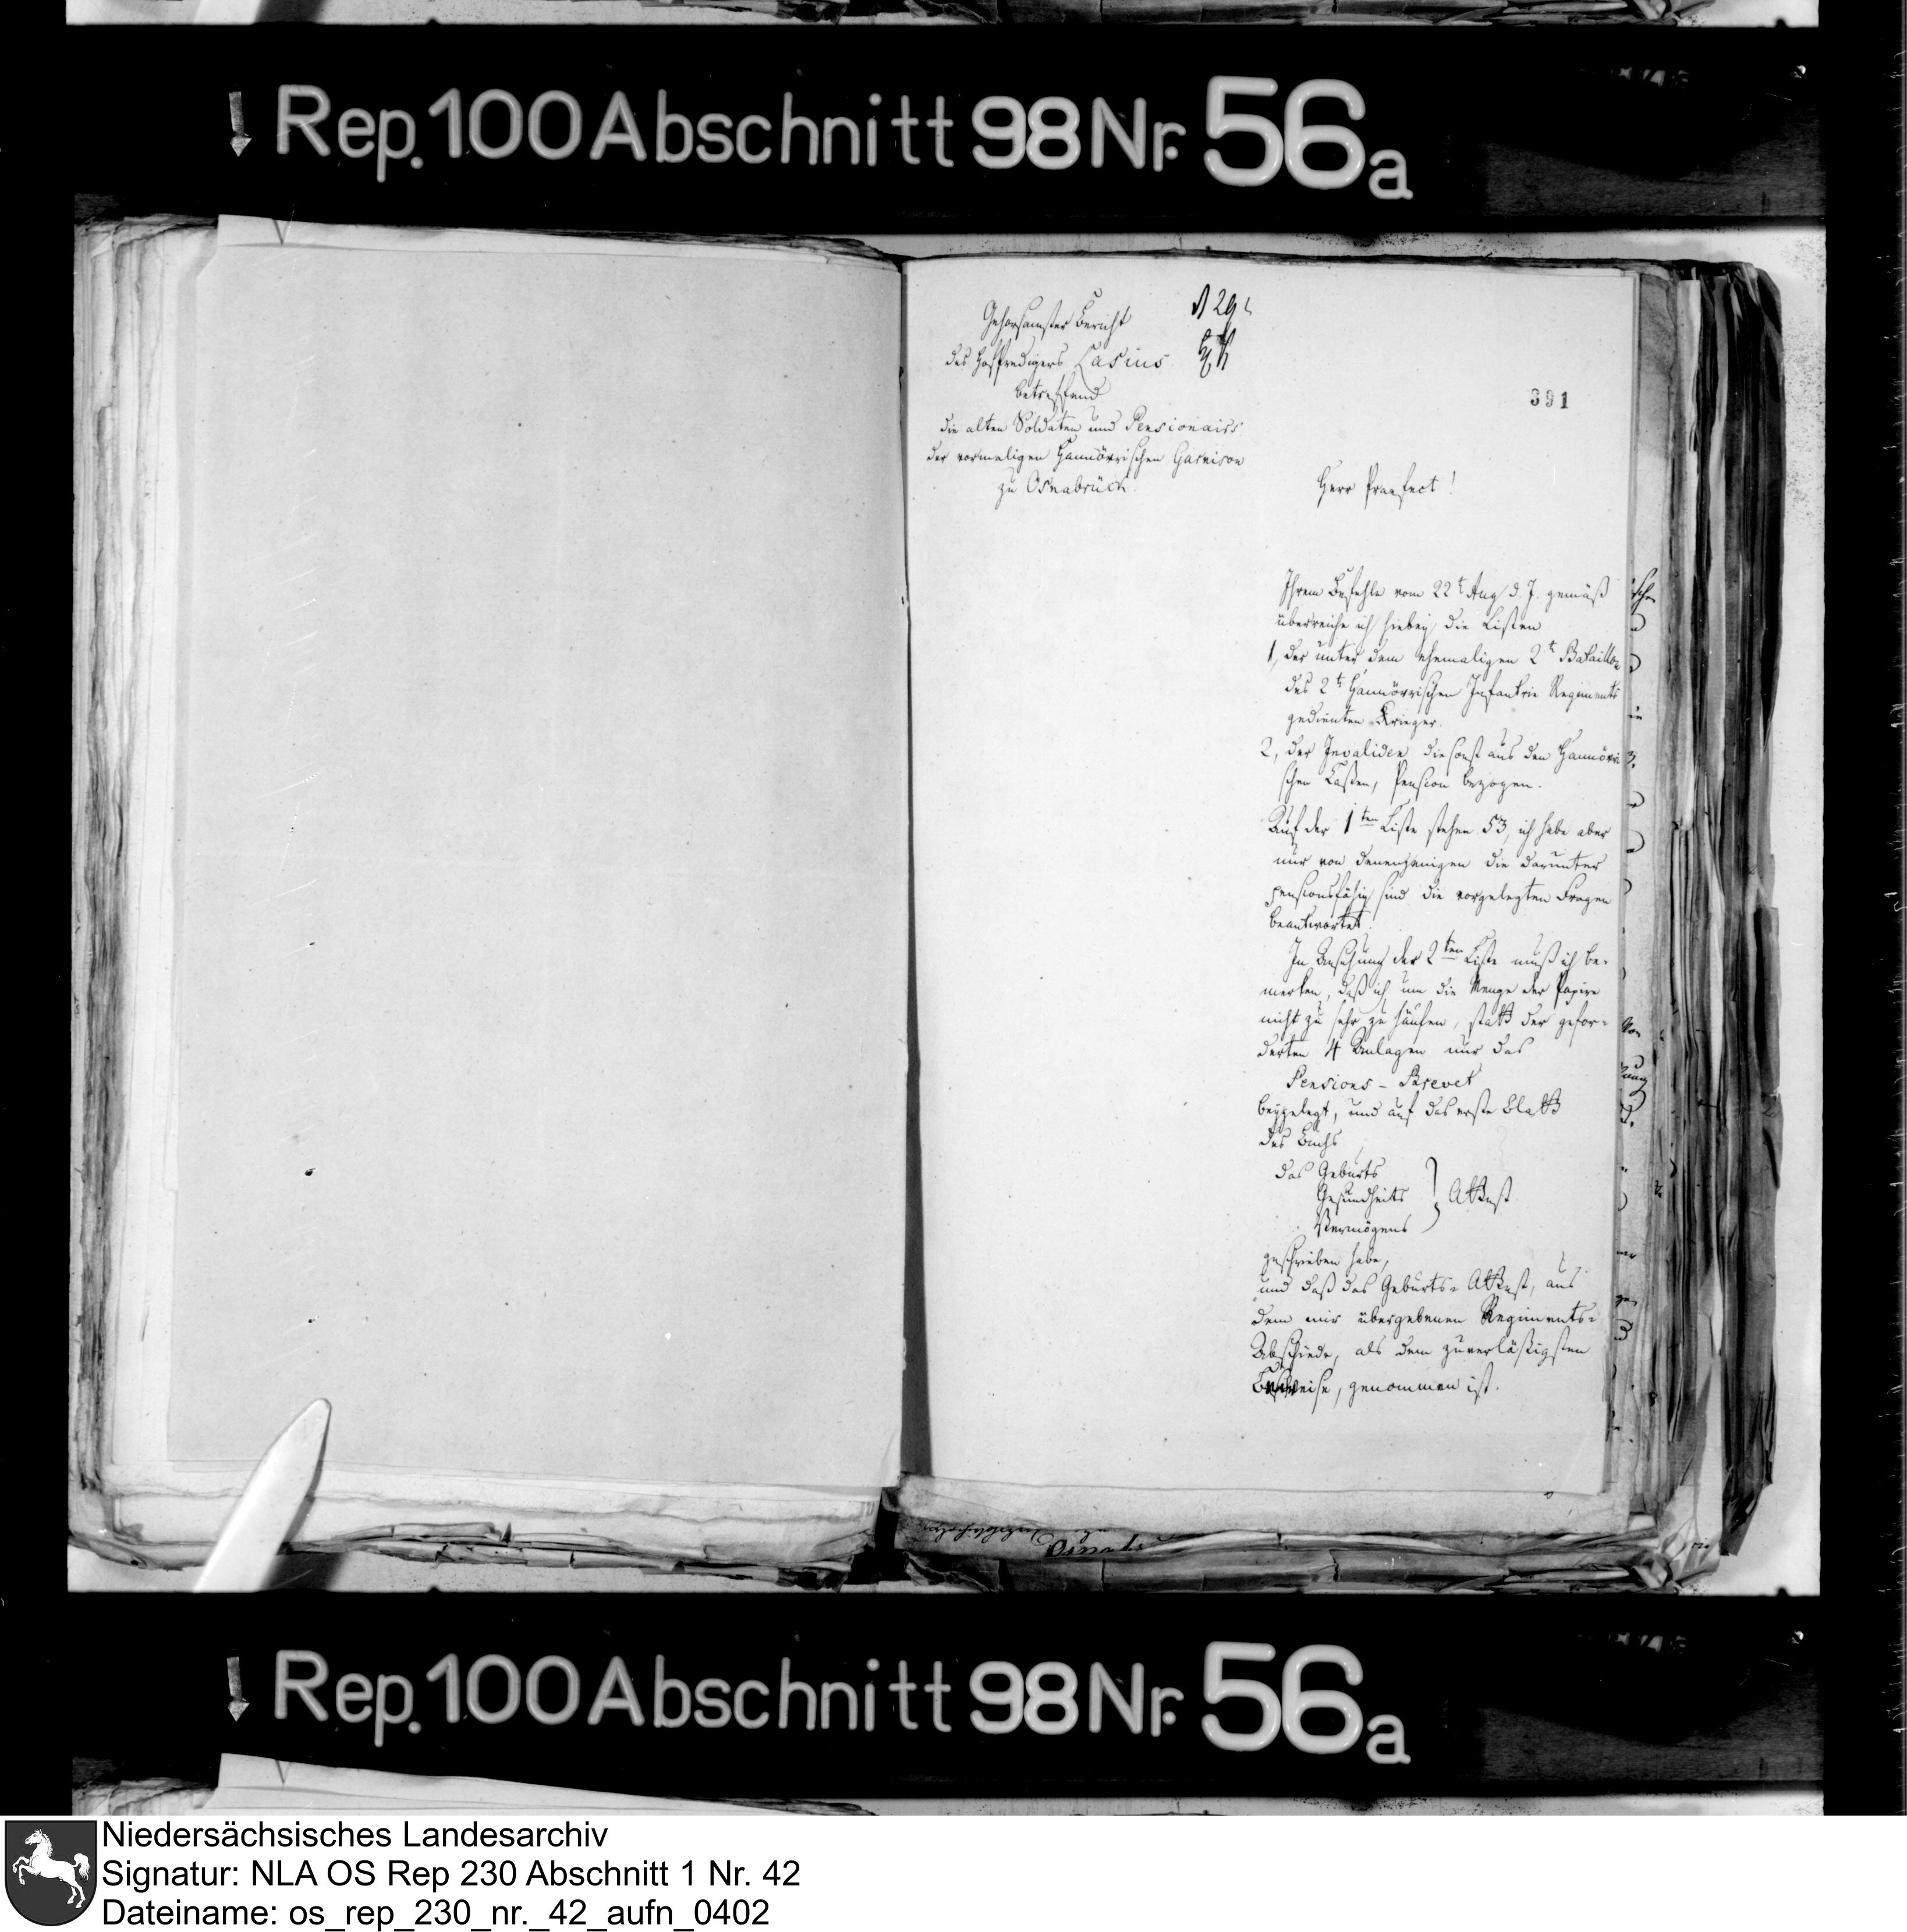 Rep. 100 Abschnitt 98 Nr. 56a
Gehorsamster Bericht
des Hofpredigers Lasius
betreffend
die alten Soldaten und Pensionairs
der vormaligen Hannövrischen Garnison
zu Osnabrück.
129
391
Herr Praefect!
Ihrem Befehle vom 22t Aug d. J. gemäß
überreiche ich hiebey die Listen
1, der unter dem ehemaligen 2t Bataillon
des 2t Hannövrischen Infantrie Regiments
gedienten Krieger.
2, der Invaliden die sonst aus den Hannövri
schen Cassen, Pension bezogen.
Auf der 1ten Liste stehen 53, ich habe aber
nur von denenjenigen die darunter
pensionsfähig sind die vorgelegten Fragen
beantwortet.
In Ansehung der 2ten Liste muß ich be-
merken, daß ich um die Menge der Papire
nicht zu sehr zu häufen, statt der gefor-
derten 4 Anlagen nur das
Pensions - Brevet
beygelegt, und auf das erste Blatt
des Buchs
das Geburts
Gesundheits } Attest
Vermögens
geschrieben habe,
und daß das Geburts- Attest, aus
dem mir übergebenen Regiments-
Abschiede, als dem zuverläßigsten
genommen ist.
Rep. 100 Abschnitt 98 Nr. 56a
Niedersächsisches Landesarchiv
Signatur: NLA OS Rep 230 Abschnitt 1 Nr. 42
Dateiname: os_rep_230_nr._42_aufn_0402